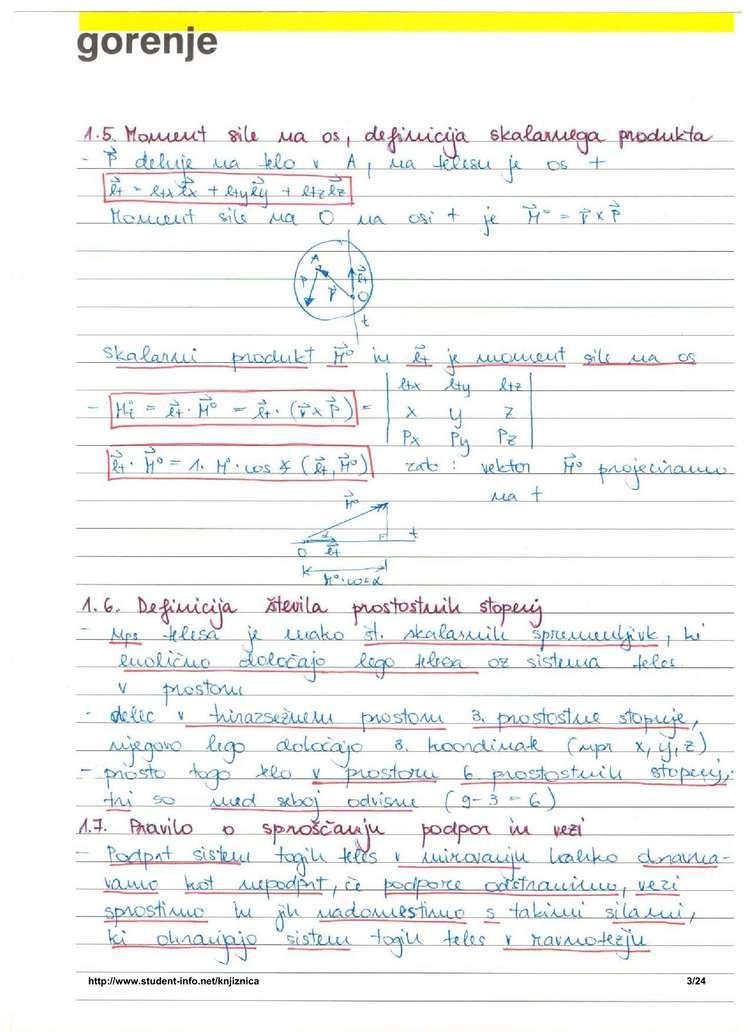 gorenje
1.5. Moment sile na os, definicija skalarnega produkta
- P⃗ deluje na telo v A, na telesu je os t
e⃗t = etx e⃗x + ety e⃗y + etz e⃗z
Moment sile na O na osi t je M⃗° = r⃗ × P⃗
A
P r⃗ e⃗t
O
t
skalarni produkt M⃗° in e⃗t je moment sile na os
- Mt° = e⃗t · M⃗° = e⃗t · (r⃗ × P⃗) = | etx ety etz |
| x y z |
| Px Py Pz |
e⃗t · M⃗° = 1 · M° · cos ∢ (e⃗t, M⃗°) zato : vektor M⃗° projeciramo
na t
M⃗°
α t
O e⃗t
M° · cos α
1.6. Definicija števila prostostnih stopenj
- Nps telesa je enako št. skalarnih spremenljivk, ki
enolično določajo lego telesa oz sistema teles
v prostoru
- delec v trirazsežnem prostoru 3. prostostne stopnje,
njegovo lego določajo 3. koordinate (npr x, y, z)
- prosto togo telo v prostoru 6 prostostnih stopenj,
tri so med seboj odvisne (9-3=6)
1.7. Pravilo o sproščanju podpor in vezi
- Podprt sistem togih teles v mirovanju lahko obravna-
vamo kot nepodprt, če podpore odstranimo, vezi
sprostimo in jih nadomestimo s takimi silami,
ki ohranjajo sistem togih teles v ravnotežju
http://www.student-info.net/knjiznica 3/24